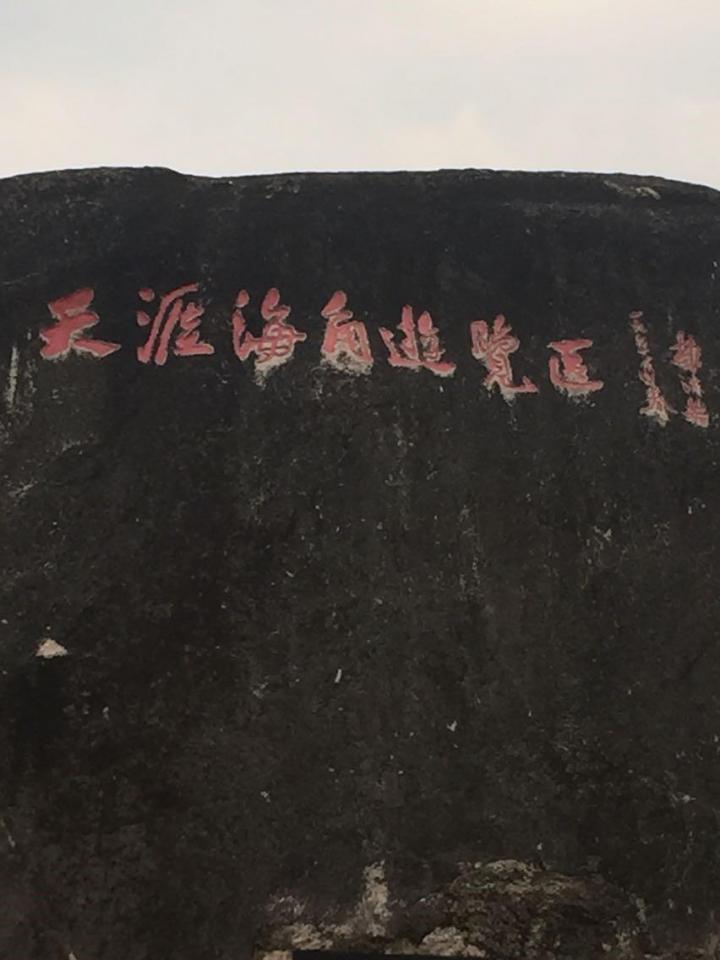 天涯海角遊覽区